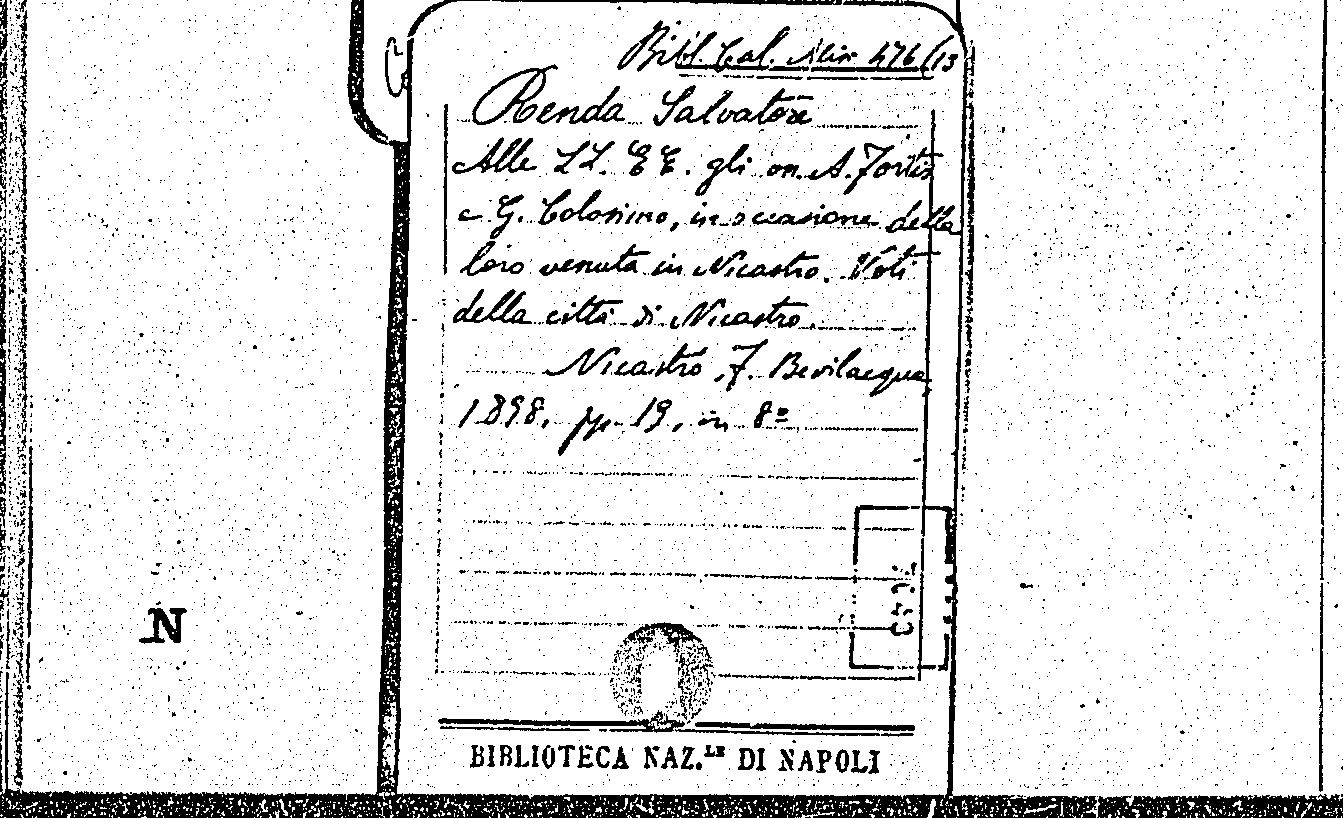 Bibl. Cal. Min 476/13
Renda Salvatore
Alle LL. EE. gli on. A. Fortis
e G. Colosimo, in occasione della
loro venuta in Nicastro. Voti
della città di Nicastro.
Nicastro, F. Bevilacqua,
1898, pp. 19, in 8º
N
BIBLIOTECA NAZ.LE DI NAPOLI